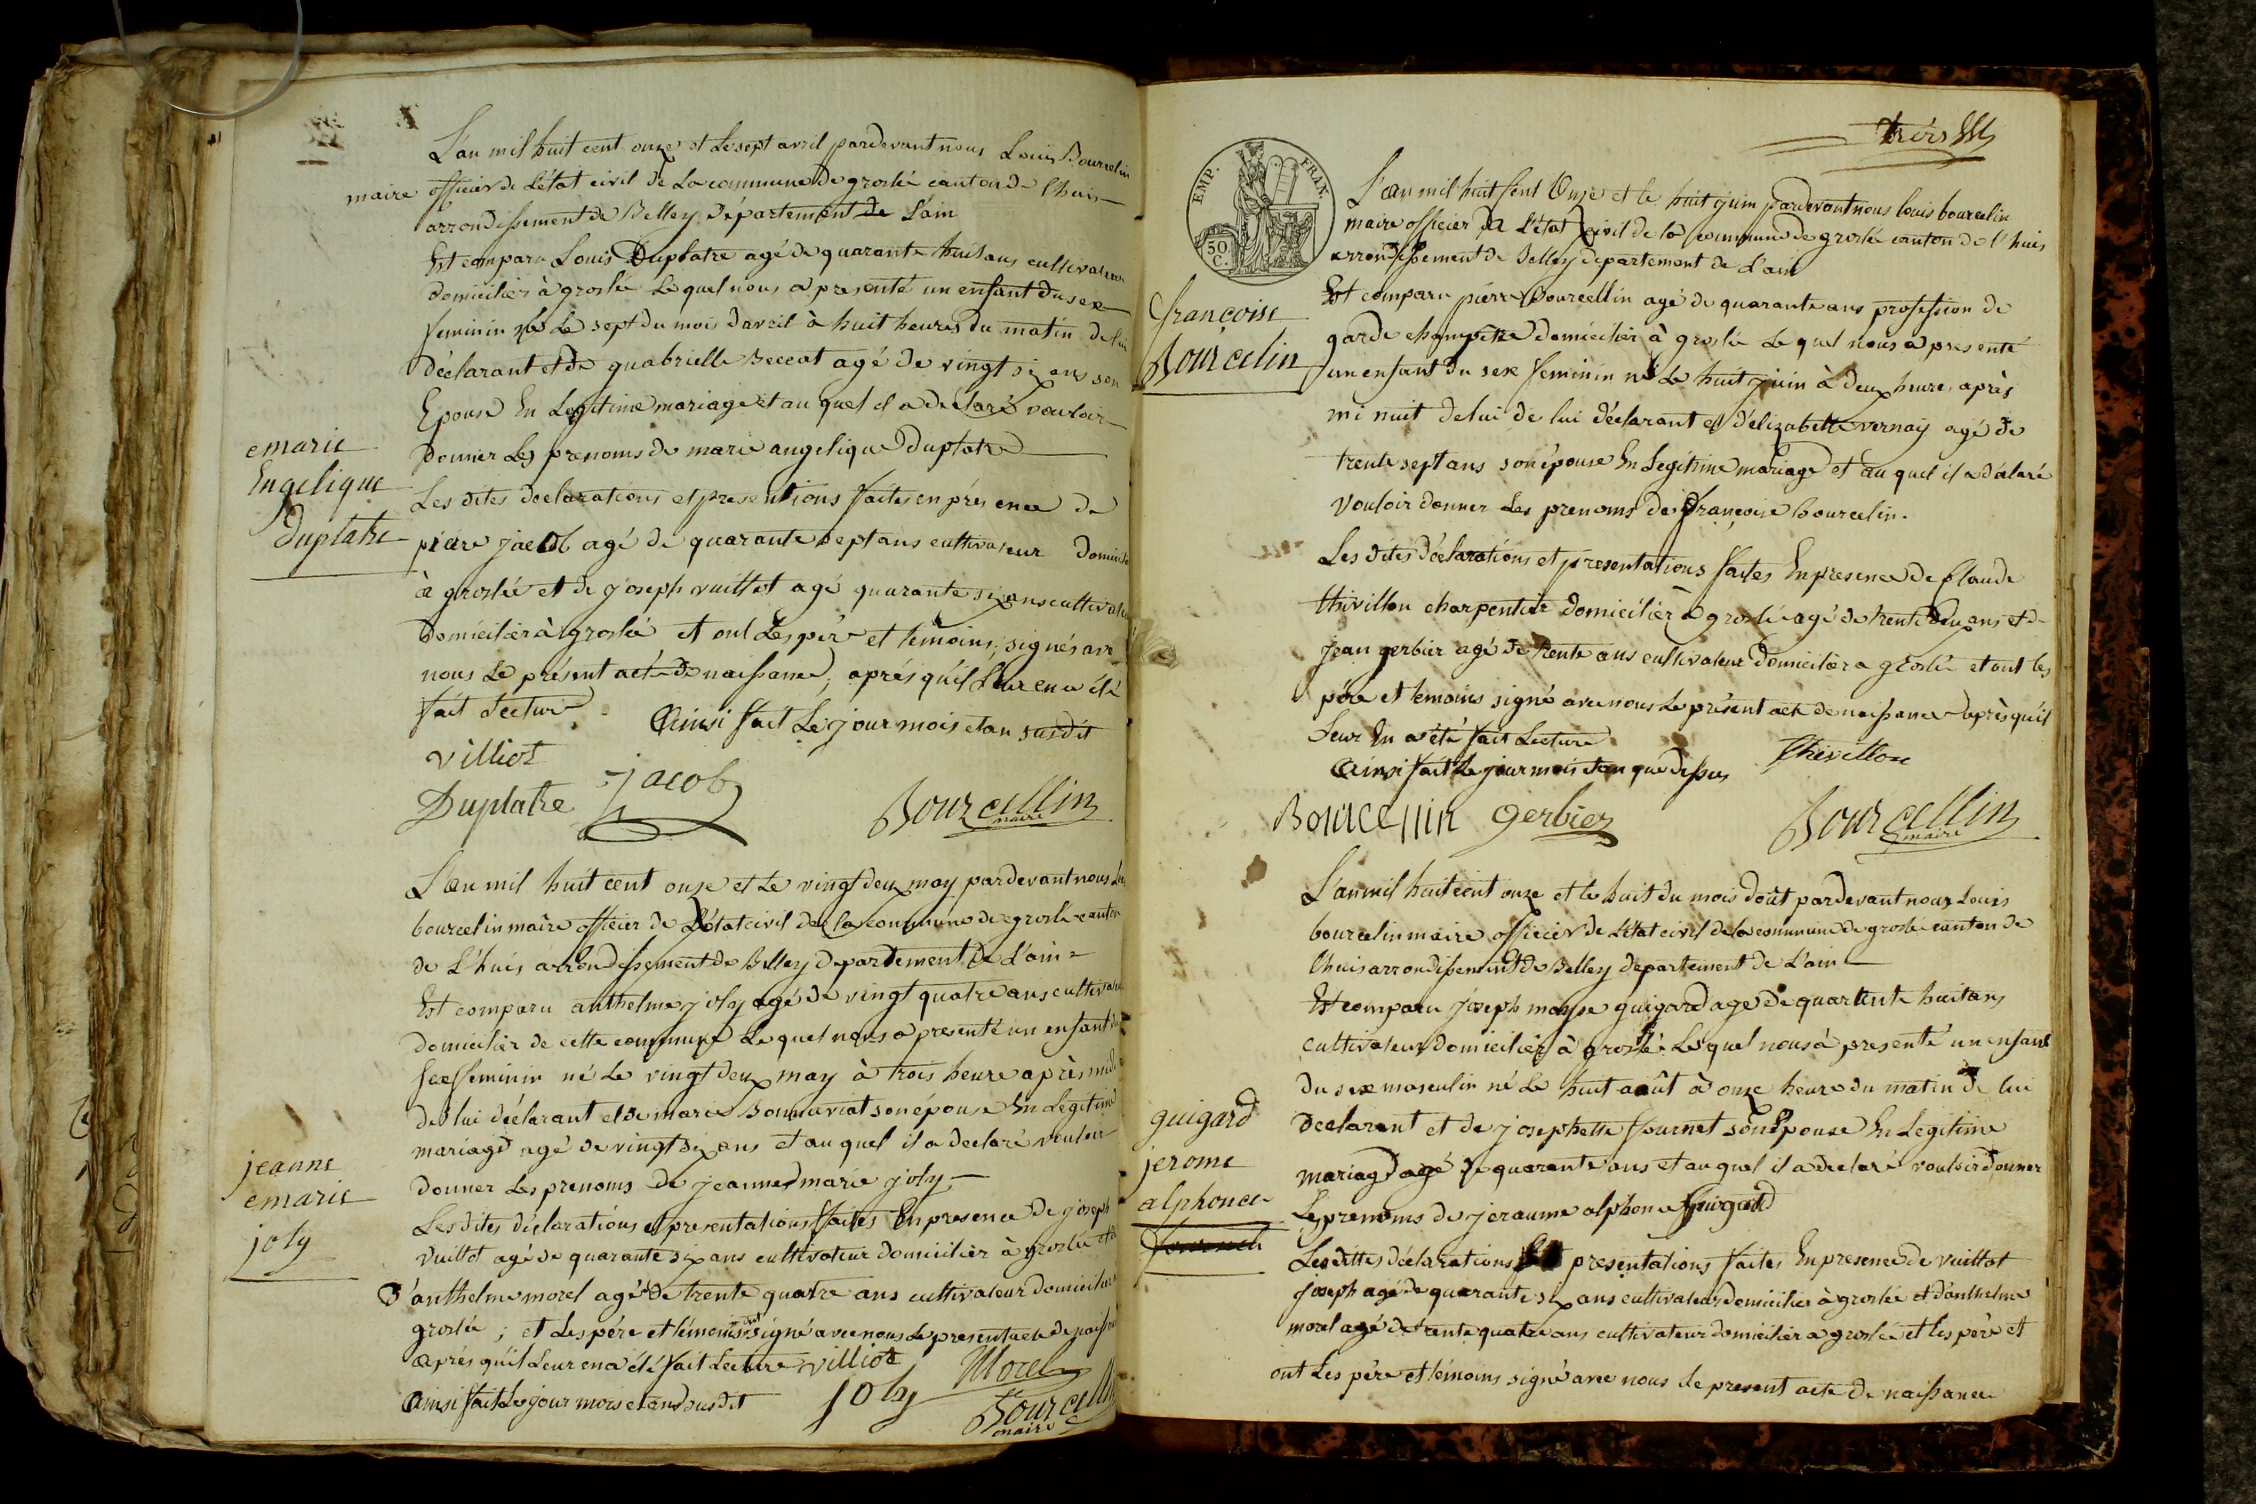 L'an mil huit cent onze et le sept avril pardevant nous Louis Bourcelin
maire officier de l'état civil de la commune de groslée canton de lhuis
arrondissement de Belley département de L'ain
Est comparu Louis Duplatre agé de quarante huit ans cultivateur
domicilier à groslée lequel nous a presenté un enfant du sexe
feminin né le sept du mois d'avril à huit heures du matin de lui
déclarant et de guabrielle Beccat agé de vingt six ans son
Epouse En Legitime mariage et au quel il a déclaré vouloir
donner Les prenoms de marie angelique duplatre
emarie
Engelique
duplatre
Les dites declarations et presentions faites en présence de
piere jacob agé de quarante sept ans cultivateur domicilié
à groslée et de joseph vuillot agé quarante six ans cultivateur
domicilier à groslée et ont Les pére et temoins, signés avec
nous Le présent acte de naissance, aprés qu'il Leur en a été
fait Lecture
Ainsi fait Le jour mois et an susdit
villiot
Duplatre jacob Bourcellin
maire
L'an mil huit cent onze et le vingt deux may pardevant nous
bourcelin maire officier de L'état civil de la commune de groslée canton
de L'huis arrondissement de Belley departement de L'ain
Est comparu anthelme joly agé de vingt quatre ans cultivateur
domicilier de cette commune Le quel nous a presenté un enfant du
sexe feminin né le vingt deux may à trois heure après midi
de lui déclarant et de marie Bonnariat son épouse En Légitime
mariage agé de vingt six ans et au quel il a declaré vouloir
donner Les prenoms de jeanne marie joly
jeanne
emarie
joly
Les dites déclarations et presentations faites En presence de joseph
vuillot agé de quarante six ans cultivateur domicilier à groslée et
d'anthelme morel agé de trente quatre ans cultivateur domicilier
groslée ; et Les pére et témoins ont signé avec nous Le present acte de naissance
après qu'il Leur en a été fait Lecture villiot
Ainsi fait Le jour mois et an susdit joly Morel
Bourcellin
maire
trois
EMP. FRAN.
50 C.
L'an mil huit cent Onze et le huit juin pardevant nous louis bourcelin
maire officier de L'état civil de la commune de groslée canton de l'huis
arrondissement de Belley département de L'ain
Est comparu pierre Bourcellin agé de quarante ans profession de
garde champêtre domicilier à groslée Le quel nous a presenté
un enfant du sexe feminin né le huit juin à deux heure après
mi nuit de lui de lui déclarant et d'élizabette vernay agé de
trente sept ans son épouse En Legitime mariage et au quel il a déclaré
vouloir donner Les prenoms de françoise bourcelin.
françoise
Bourcelin
Les dites déclarations et presentations faites En presence de Claude
thivillon charpentier domicilier à groslée agé de trente deux ans et de
jean gerbier agé de trente ans cultivateur domicilier a groslée et ont les
pére et temoins signé avec nous Le présent acte de naissance après qu'il
Leur En a été fait Lecture
Ainsi fait le jour mois et an que dessus
Thevillon
Bourcellin gerbier Bourcellin
maire
L'an mil huit cent onze et le huit du mois d'oût pardevant nous Louis
bourcelin maire officier de L'état civil de la commune de groslée canton de
lhuis arrondissement de Belley departement de L'ain
Est comparu joseph moyse guigard age de quarente huit ans
cultivateur domicilier à groslée Le quel nous à presenté un enfant
du sexe masculin né Le huit août à onze heure du matin de lui
declarant et de josephette fournet son Epouse En Legitime
mariage agé de quarante ans et au quel il a declaré vouloir donner
Les prenoms de jeraume alphonce guigard
guigard
jerome
alphonce
Les dittes déclarations et presentations faites En presence de vuillot
joseph agé de quarante six ans cultivateur domicilier à groslée et d'anthelme
morel agé de trente quatre ans cultivateur domicilier a groslée et les pére et
ont Les pére et témoins signé avec nous Le present acte de naissance